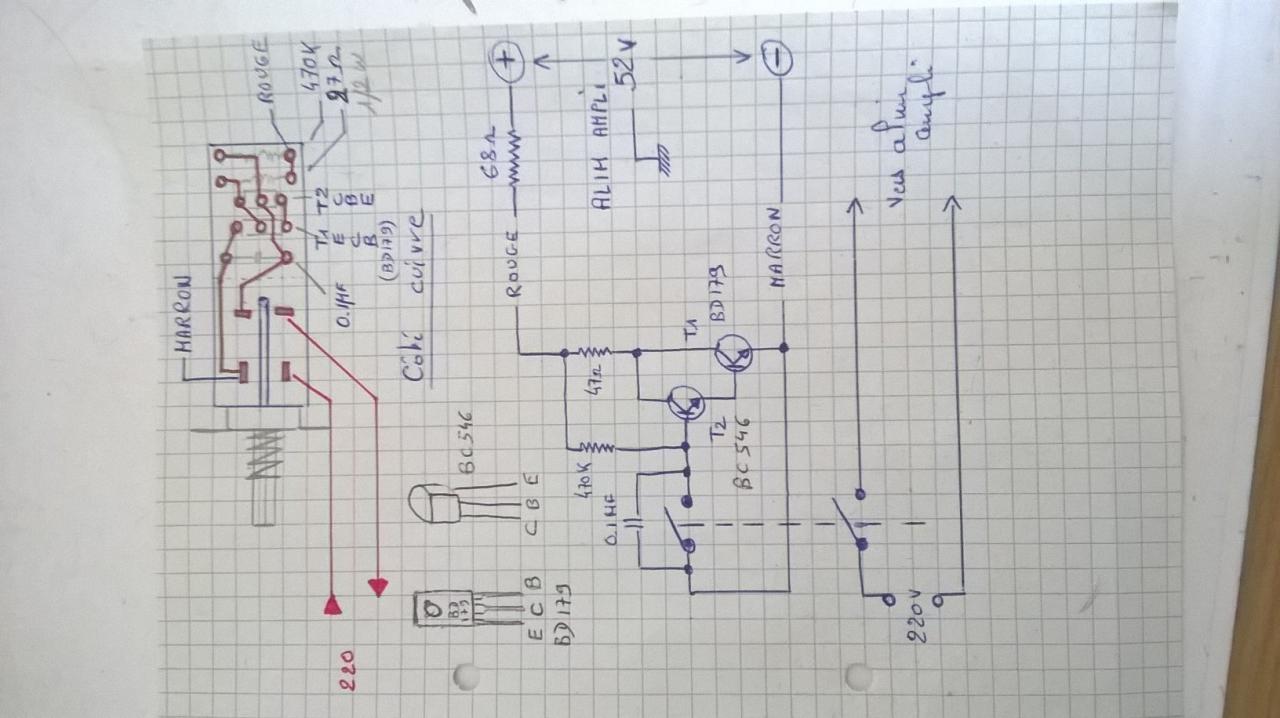 MARRON
ROUGE
470K
27Ω
1/2W
T1 T2
E C
C B
B E
(BD179)
0.1µF
220
Côté cuivre
BD
179
BC546
E C B
BD179
C B E
ROUGE
68Ω
+
470K
47Ω
0.1µF
ALIM AMPLI
52V
T1
BD179
T2
BC546
MARRON
-
220V
Vers alim
ampli